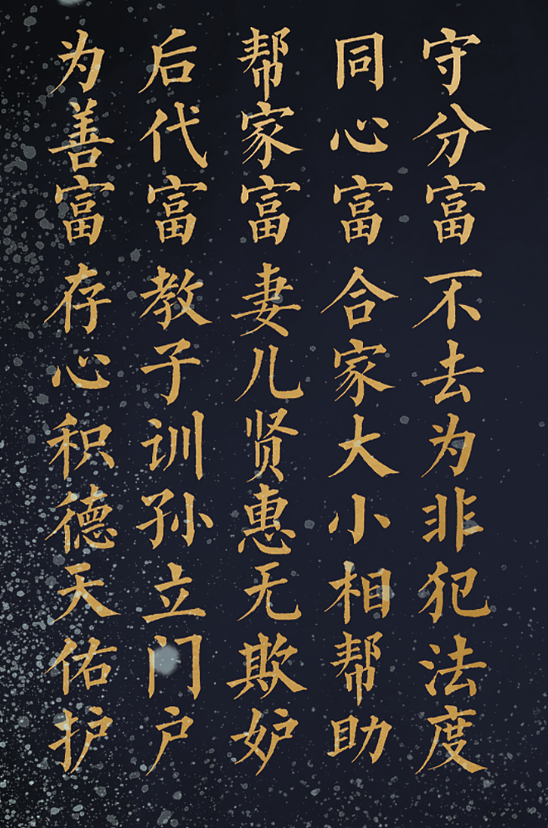 守分富不去为非犯法度
同心富合家大小相帮助
帮家富妻儿贤惠无欺妒
后代富教子训孙立门户
为善富存心积德天佑护